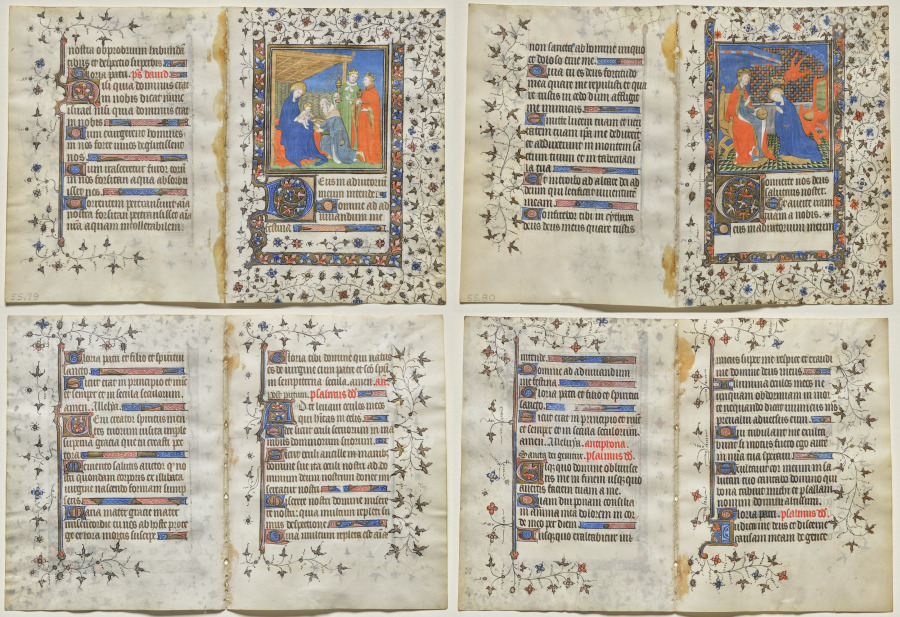 nostra obprobrium habundan
tibus et despectio superbis
Gloria patri. ps david
Nisi quia dominus erat
in nobis dicat nunc
israel nisi quia dominus erat
in nobis
Cum exurgerent homines
in nos forte vivos deglutissent
nos
Cum irasceretur furor eorum
in nos forsitan aqua absorbu
isset nos
Torrentem pertransivit aīa
nostra forsitan pertransisset aīa
nra aquam intollerabilem
Deus in adiutorium
meum intende
Domine ad ad
iuvandum me
festina
55.79
non sancta ab homine iniquo
et doloso erue me
Quia tu es deus fortitudo
mea quare me repulisti et qua
re tristis incedo dum affligit
me inimicus
Emitte lucem tuam et veri
tatem tuam ipā me deduxert
et adduxerunt in montem sā
ctum tuum et in tabernacu
la tua
Et introibo ad altare dei ad
deum qui letificat iuventute
meam
Confitebor tibi in cythara
deus deus meus quare tristis
55.80
Converte nos deus
salutaris noster
Et averte iram
tuam a nobis
Deus in adiutorium meum
Gloria patri et filio et spiritui
sancto
Sicut erat in principio et nūc
et semper et in secula seculorum
amen. Alleluya.
Veni creator spiritus men
tes tuorum visita imple
superna gracia que tu creasti pec
tora
Memento salutis auctor q̄ no
stri quondam corporis ex illibata
virgine nascendo formam sump
seris
Maria mater gracie mater
misericordie tu nos ab hoste prote
ge et hora mortis suscipe
Gloria tibi domine qui natus
es de virgine cum patre et scō spū
in sempiterna secula. amen. an.
psalmus dd
Ad te levavi oculos meos
qui habitas in celis
Ecce sicut oculi servorum in ma
nibus dominorum suorum
Sicut oculi ancille in manibus
domine sue ita oculi nostri ad do
minum deum nostrum donec mi
sereatur nostri
Miserere nostri domine miserere
nostri quia multum repleti su
mus despectione
Quia multum repleta est aīa
intende
Domine ad adiuvandum
me festina
Gloria patri et filio et spiritui
sancto
Sicut erat in principio et nūc
et semper et in secula seculorum
amen. Alleluya. antiphona
Sancta dei genitrix. psalmus dd.
Usquequo domine oblivisce
ris me in finem usquequo
avertis faciem tuam a me
Quam diu ponam consilia
in anima mea dolorem in cor
de meo per diem
Usquequo exaltabitur ini
micus super me respice et exaudi
me domine deus meus
Illumina oculos meos ne
unquam obdormiam in mor
te nequando dicat inimicus ms
prevalui adversus eum
Qui tribulant me exulta
bunt si motus fuero ego autem
in misericordia tua speravi
Exultabit cor meum in sa
lutari tuo cantabo domino qui
bona tribuit michi et psallam
nomini domini altissimi
Gloria patri. psalmus dd.
Iudica me deus et discerne
causam meam de gente